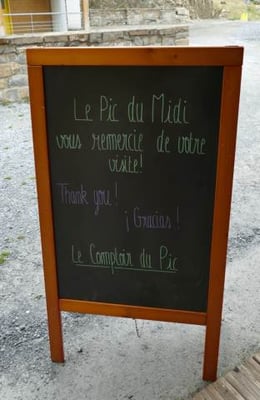 Le Pic du Midi
vous remercie de votre
visite!
Thank you!
¡Gracias!
Le Comptoir du Pic